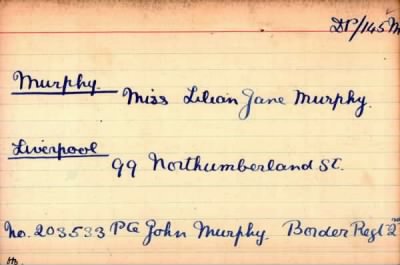 DP/145M
Murphy
Miss Lilian Jane Murphy.
Liverpool
99 Northumberland St.
No. 203533 Pte John Murphy. Border Regt 2